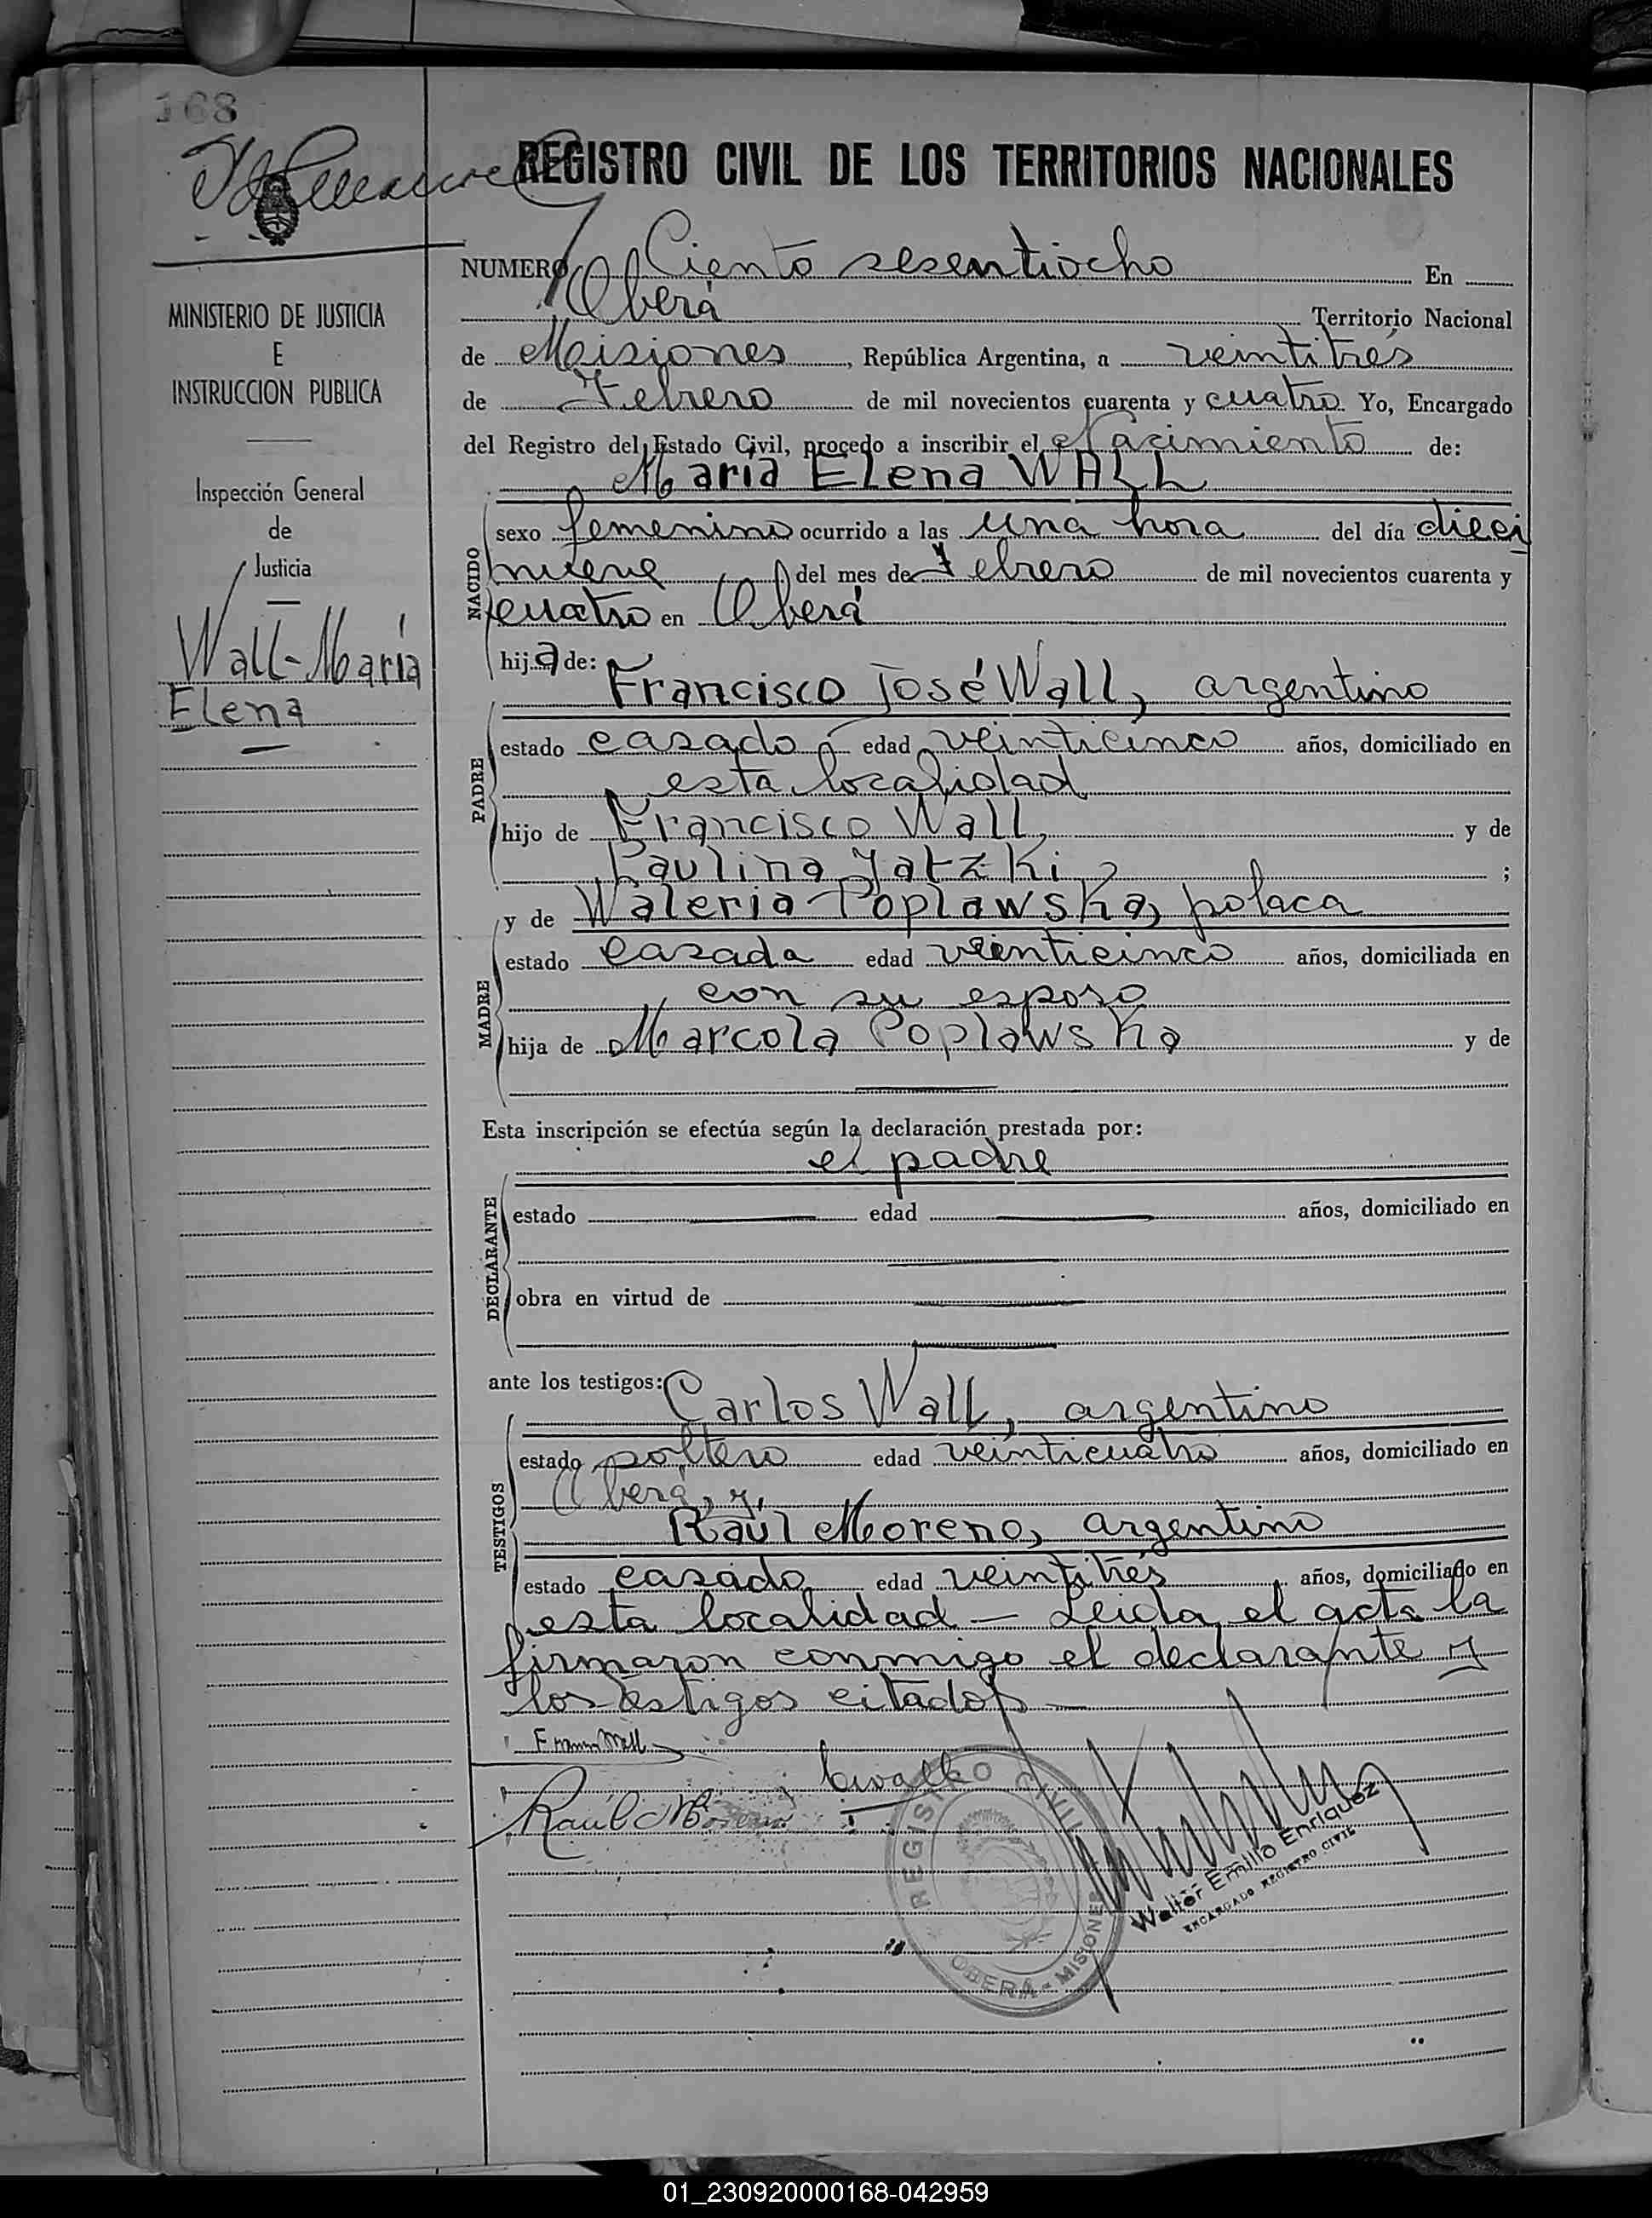 168
REGISTRO CIVIL DE LOS TERRITORIOS NACIONALES
MINISTERIO DE JUSTICIA
E
INSTRUCCION PUBLICA
Inspección General
de
Justicia
Wall-María
Elena
NUMERO Ciento sesentiocho En
Oberá Territorio Nacional
de Misiones, República Argentina, a veintitrés
de Febrero de mil novecientos cuarenta y cuatro Yo, Encargado
del Registro del Estado Civil, procedo a inscribir el Nacimiento de:
María Elena WALL
NACIDO
sexo femenino ocurrido a las una hora del día dieci
nueve del mes de Febrero de mil novecientos cuarenta y
cuatro en Oberá
hija de:
Francisco José Wall, argentino
PADRE
estado casado edad veinticinco años, domiciliado en
esta localidad
hijo de Francisco Wall, y de
Paulina Jatzki ;
y de Waleria Poplawska, polaca
MADRE
estado casada edad veinticinco años, domiciliada en
con su esposo
hija de Marcola Poplawska y de
Esta inscripción se efectúa según la declaración prestada por:
el padre
DECLARANTE
estado edad años, domiciliado en
obra en virtud de
ante los testigos:
Carlos Wall, argentino
TESTIGOS
estado soltero edad veinticuatro años, domiciliado en
Oberá, y,
Raúl Moreno, argentino
estado casado edad veintitrés años, domiciliado en
esta localidad — Leida el acta la
firmaron conmigo el declarante y
los testigos citados —
Raúl Moreno
REGISTRO CIVIL
OBERÁ - MISIONES
Walter Emilio Enriquez
ENCARGADO REGISTRO CIVIL
01_230920000168-042959